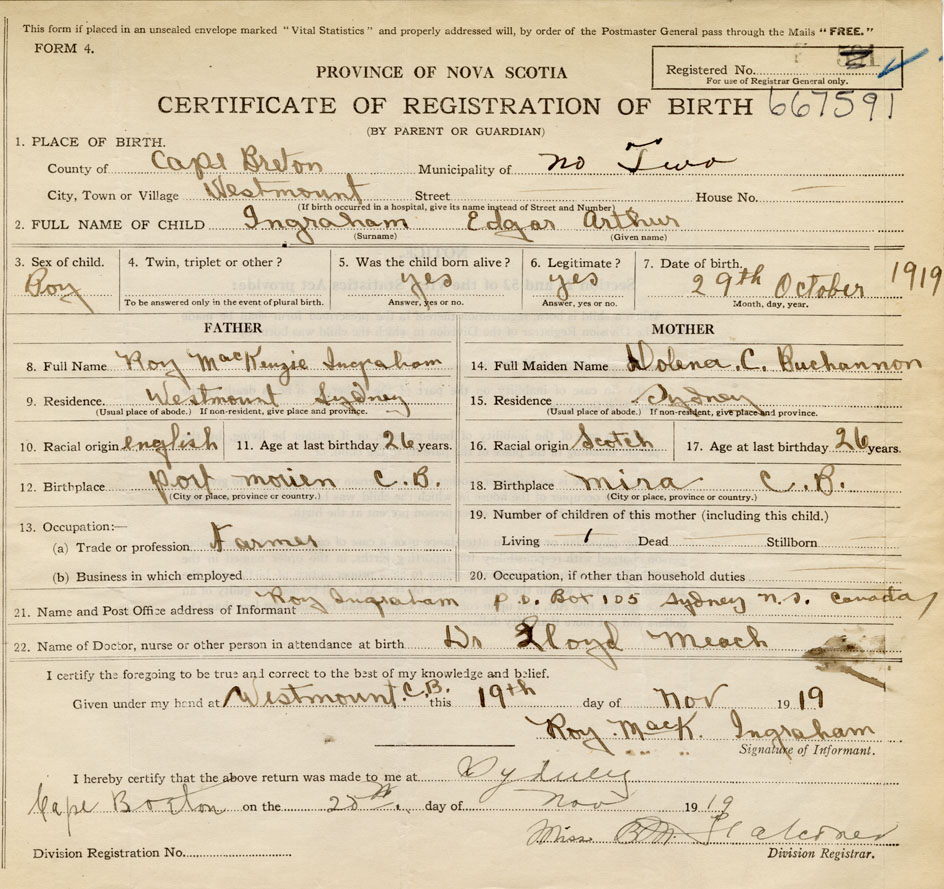 This form if placed in an unsealed envelope marked "Vital Statistics" and properly addressed will, by order of the Postmaster General pass through the Mails "FREE."
FORM 4.
PROVINCE OF NOVA SCOTIA
Registered No.
For use of Registrar General only.
CERTIFICATE OF REGISTRATION OF BIRTH 667591
(BY PARENT OR GUARDIAN)
1. PLACE OF BIRTH.
County of Cape Breton Municipality of no Two
City, Town or Village Westmount Street House No.
(If birth occurred in a hospital, give its name instead of Street and Number)
2. FULL NAME OF CHILD Ingraham Edgar Arthur
(Surname) (Given name)
3. Sex of child. 4. Twin, triplet or other? 5. Was the child born alive? 6. Legitimate? 7. Date of birth.
Boy yes yes 29th October 1919
To be answered only in the event of plural birth. Answer, yes or no. Answer, yes or no. Month, day, year.
FATHER MOTHER
8. Full Name Roy MacKenzie Ingraham 14. Full Maiden Name Dolena. C. Buchannon
9. Residence. Westmount Sydney 15. Residence Sydney
(Usual place of abode.) If non-resident, give place and province. (Usual place of abode.) If non-resident, give place and province.
10. Racial origin english 11. Age at last birthday 26 years. 16. Racial origin Scotch 17. Age at last birthday 26 years.
12. Birthplace port morien C.B. 18. Birthplace mira C.B.
(City or place, province or country.) (City or place, province or country.)
13. Occupation:— 19. Number of children of this mother (including this child.)
(a) Trade or profession Farmer Living 1 Dead Stillborn
(b) Business in which employed 20. Occupation, if other than household duties
21. Name and Post Office address of Informant Roy Ingraham P.O. Box 105 Sydney N.S. Canada
22. Name of Doctor, nurse or other person in attendance at birth Dr Lloyd Meach
I certify the foregoing to be true and correct to the best of my knowledge and belief.
Given under my hand at Westmount. C.B. this 19th day of Nov 1919
Roy. MacK. Ingraham
Signature of Informant.
I hereby certify that the above return was made to me at Sydney
Cape Breton on the day of Nov 1919
Miss
Division Registration No. Division Registrar.